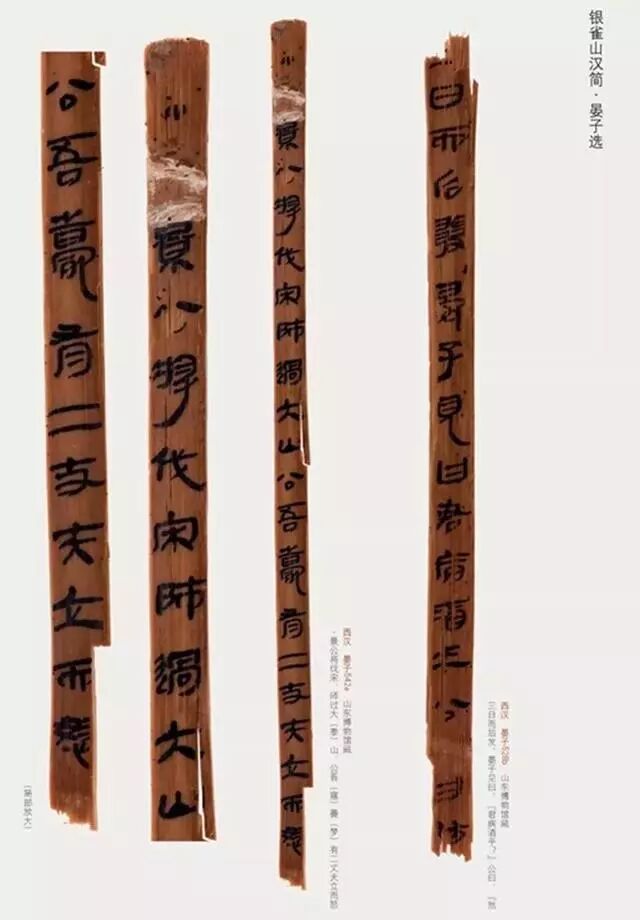 银雀山汉简·晏子选
西汉 晏子528b 山东博物馆藏
三日而后发,晏子见曰:『君病酒乎?』公曰:『然
日而后發晏子見曰君病酒乎公曰
西汉 晏子542a 山东博物馆藏
·景公将伐宋,师过大〔泰〕山,公吾〔寤〕薨〔梦〕有二丈夫立而怒
景公將伐宋師過大山公吾薨有二丈夫立而怒
景公將伐宋師過大山
公吾薨有二丈夫立而怒
(局部放大)